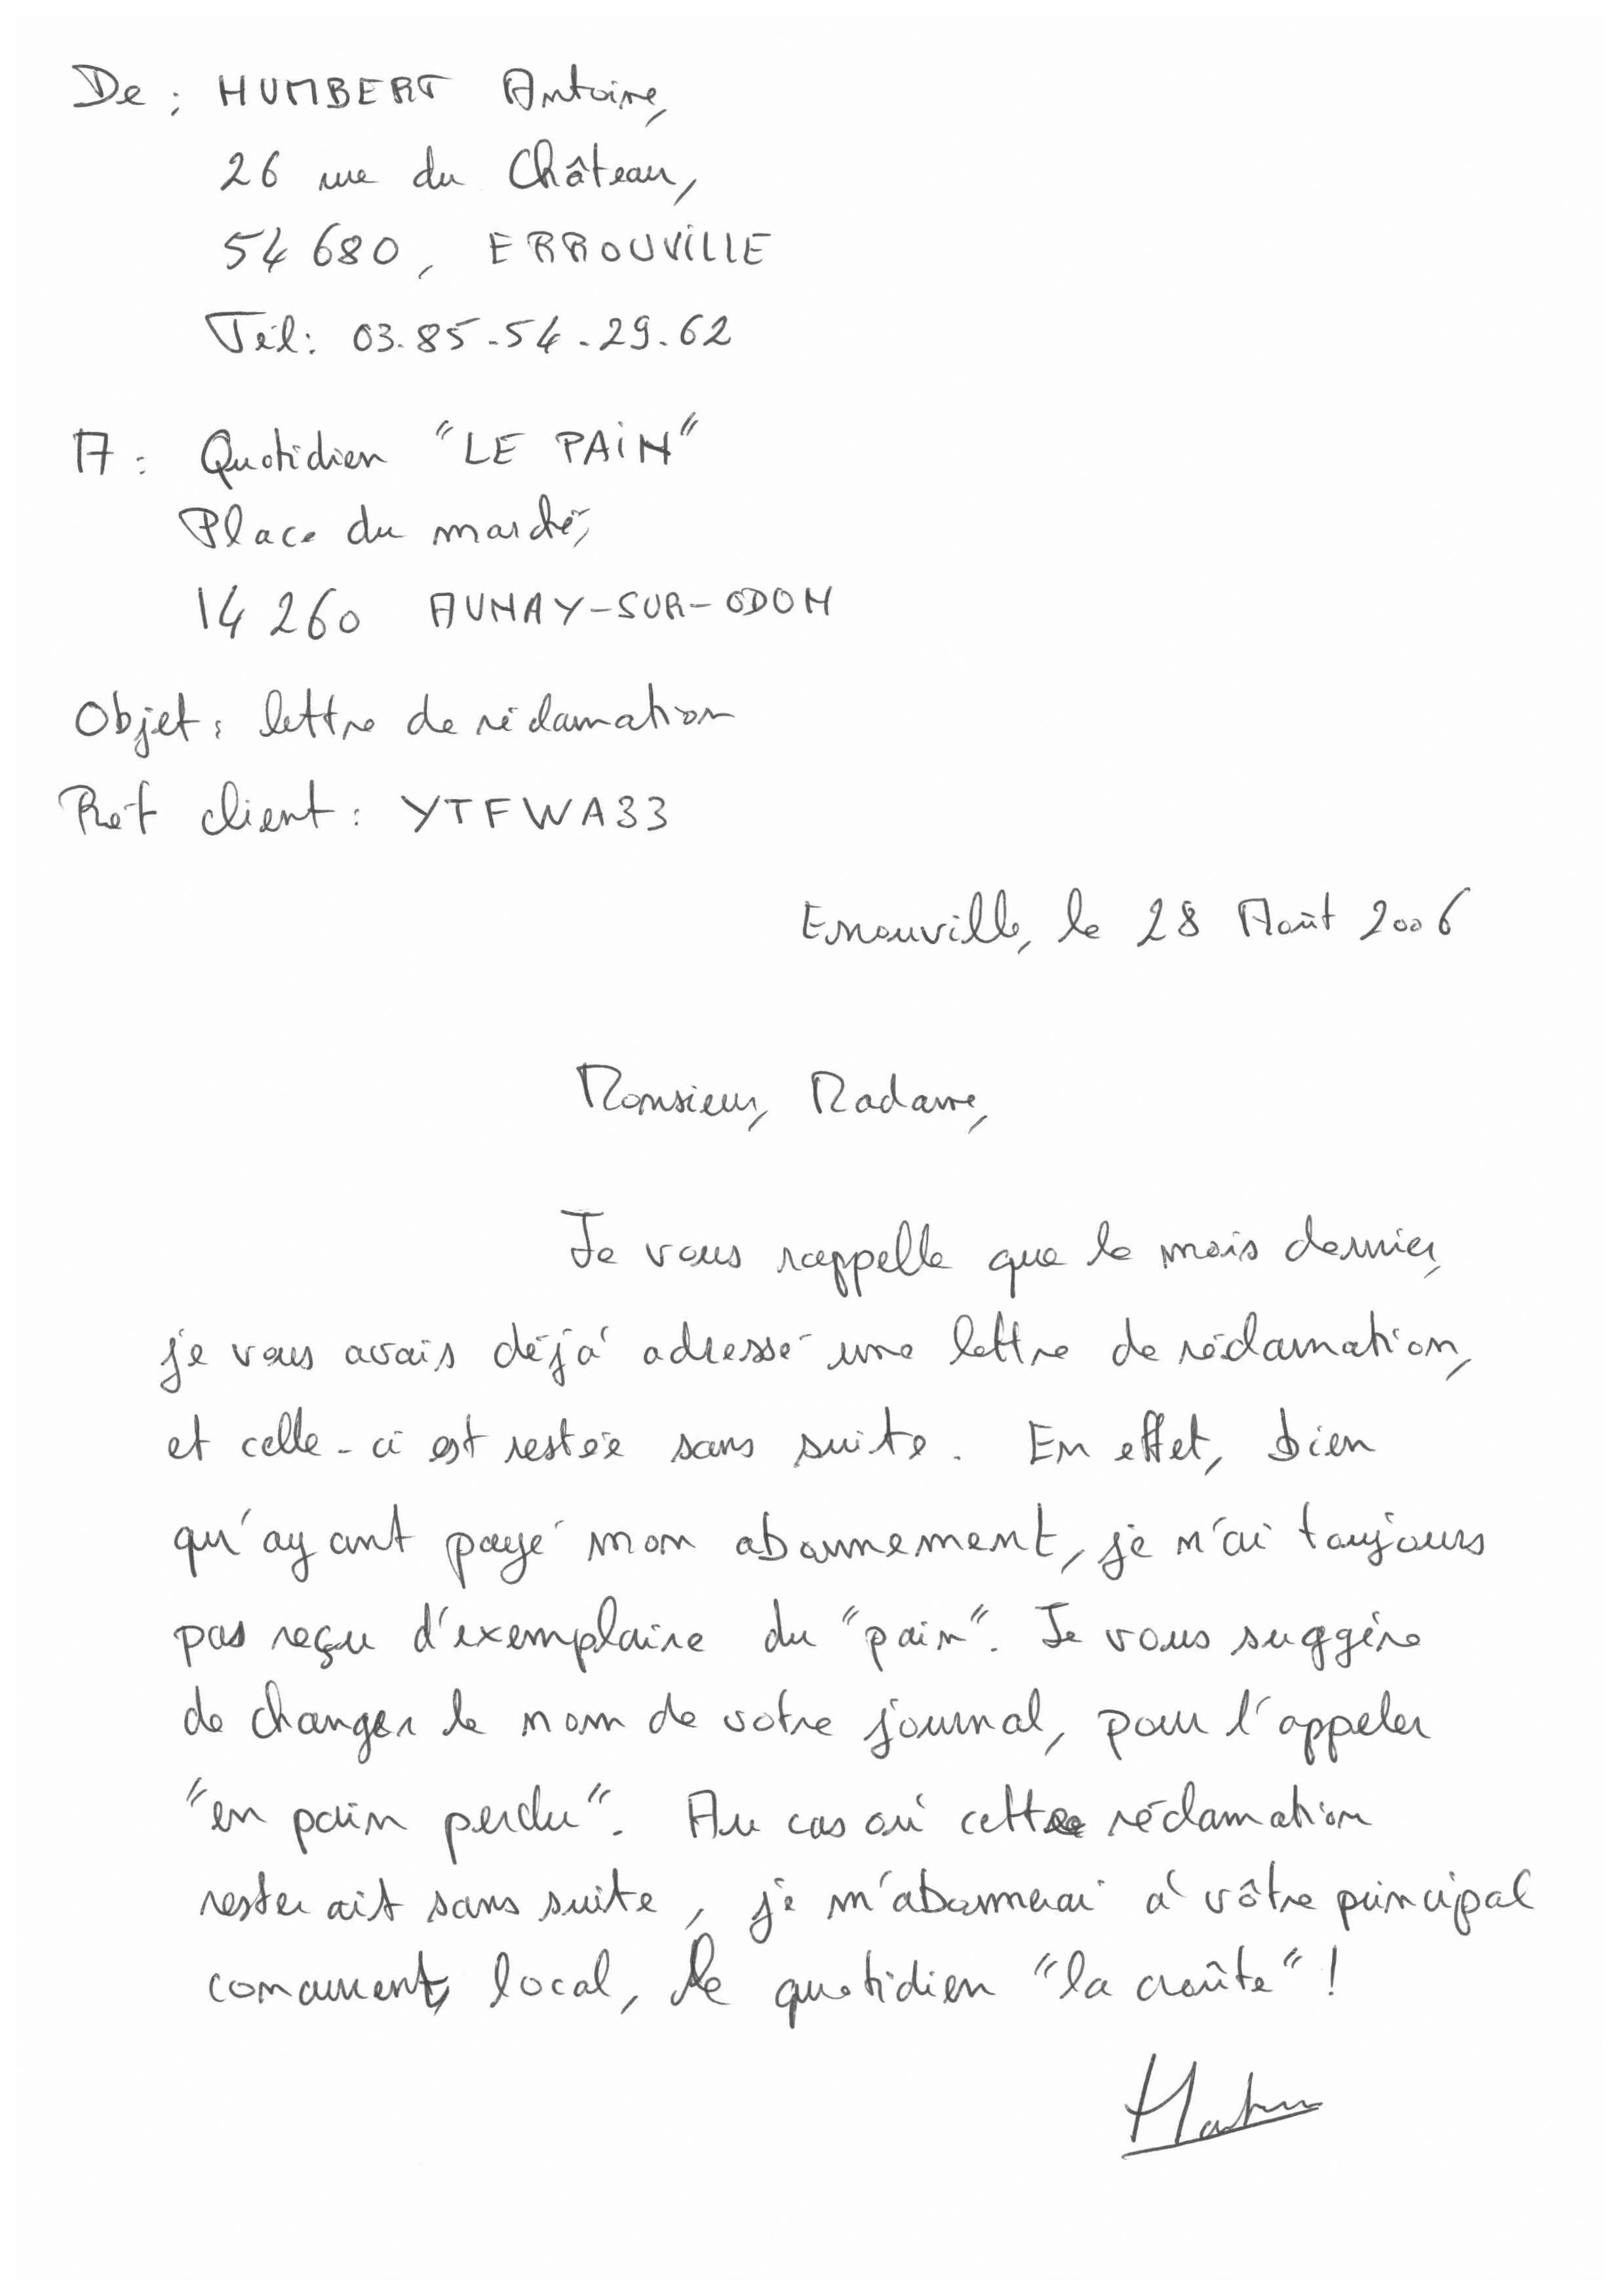 De : HUMBERT Antoine,
26 rue du Château,
54 680, ERROUVILLE
Tél: 03.85.54.29.62
A : Quotidien "LE PAIN"
Place du marché,
14 260 AUNAY-SUR-ODON
Objet : lettre de réclamation
Réf client : YTFWA33
Errouville, le 28 Août 2006
Monsieur, Madame,
Je vous rappelle que le mois dernier,
je vous avais déjà adressé une lettre de réclamation,
et celle-ci est restée sans suite. En effet, bien
qu'ayant payé mon abonnement, je n'ai toujours
pas reçu d'exemplaire du "pain". Je vous suggère
de changer le nom de votre journal, pour l'appeler
"en pain perdu". Au cas où cette réclamation
resterait sans suite, je m'abonnerai à vôtre principal
concurrent, local, le quotidien "la croûte" !